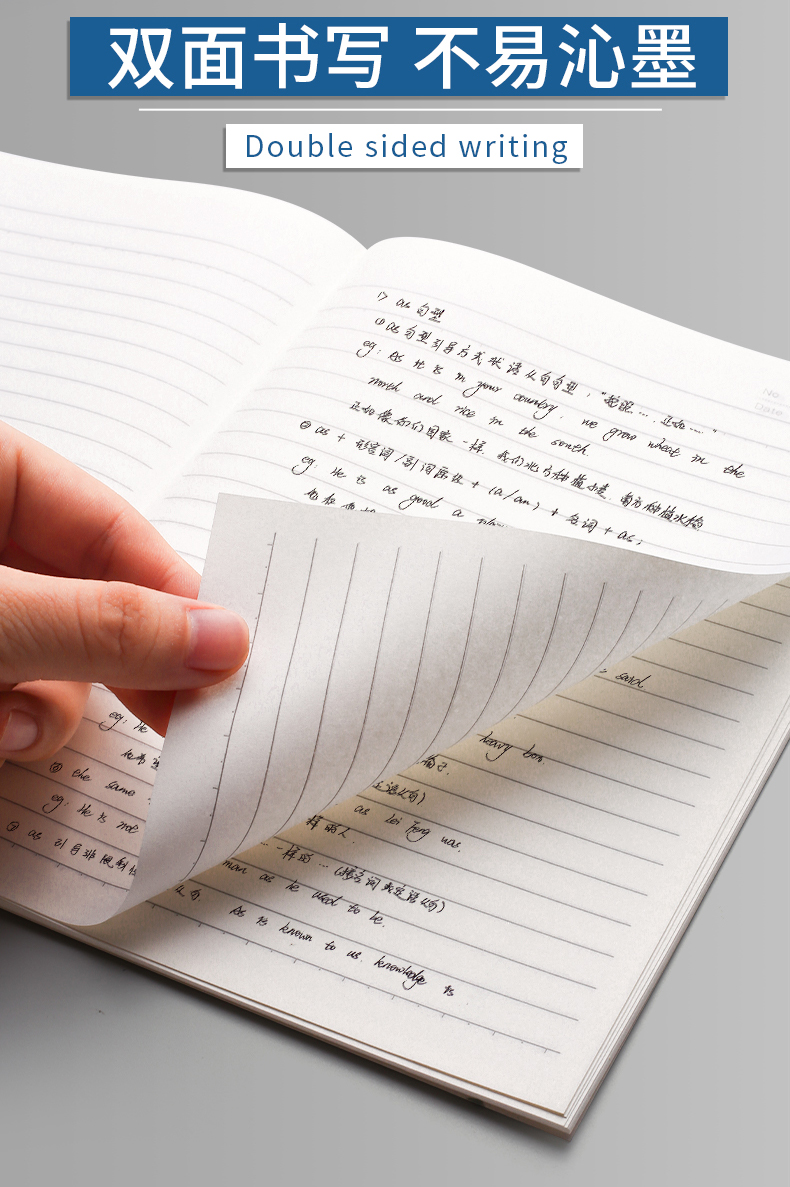 双面书写 不易沁墨
Double sided writing
No
Date
1> as 句型
① as 句型引导方式状语从句句型："按照…，正如……"
eg: As it is in your country, we grow wheat in the
north and rice in the south.
正如像你们国家一样，我们北方种植小麦，南方种植水稻
② as + 形容词/副词原级 + (a/an) + 名词 + as;
eg: He is as good a
said
heavy box.
箱子.
eg: He
定语从句)
③ the same
as Lei Feng was.
eg: He is not
样的人
④ as 引导非限制性
一样的 … (接名词或定语从句)
man as he used to be.
句. As is known to us, knowledge is